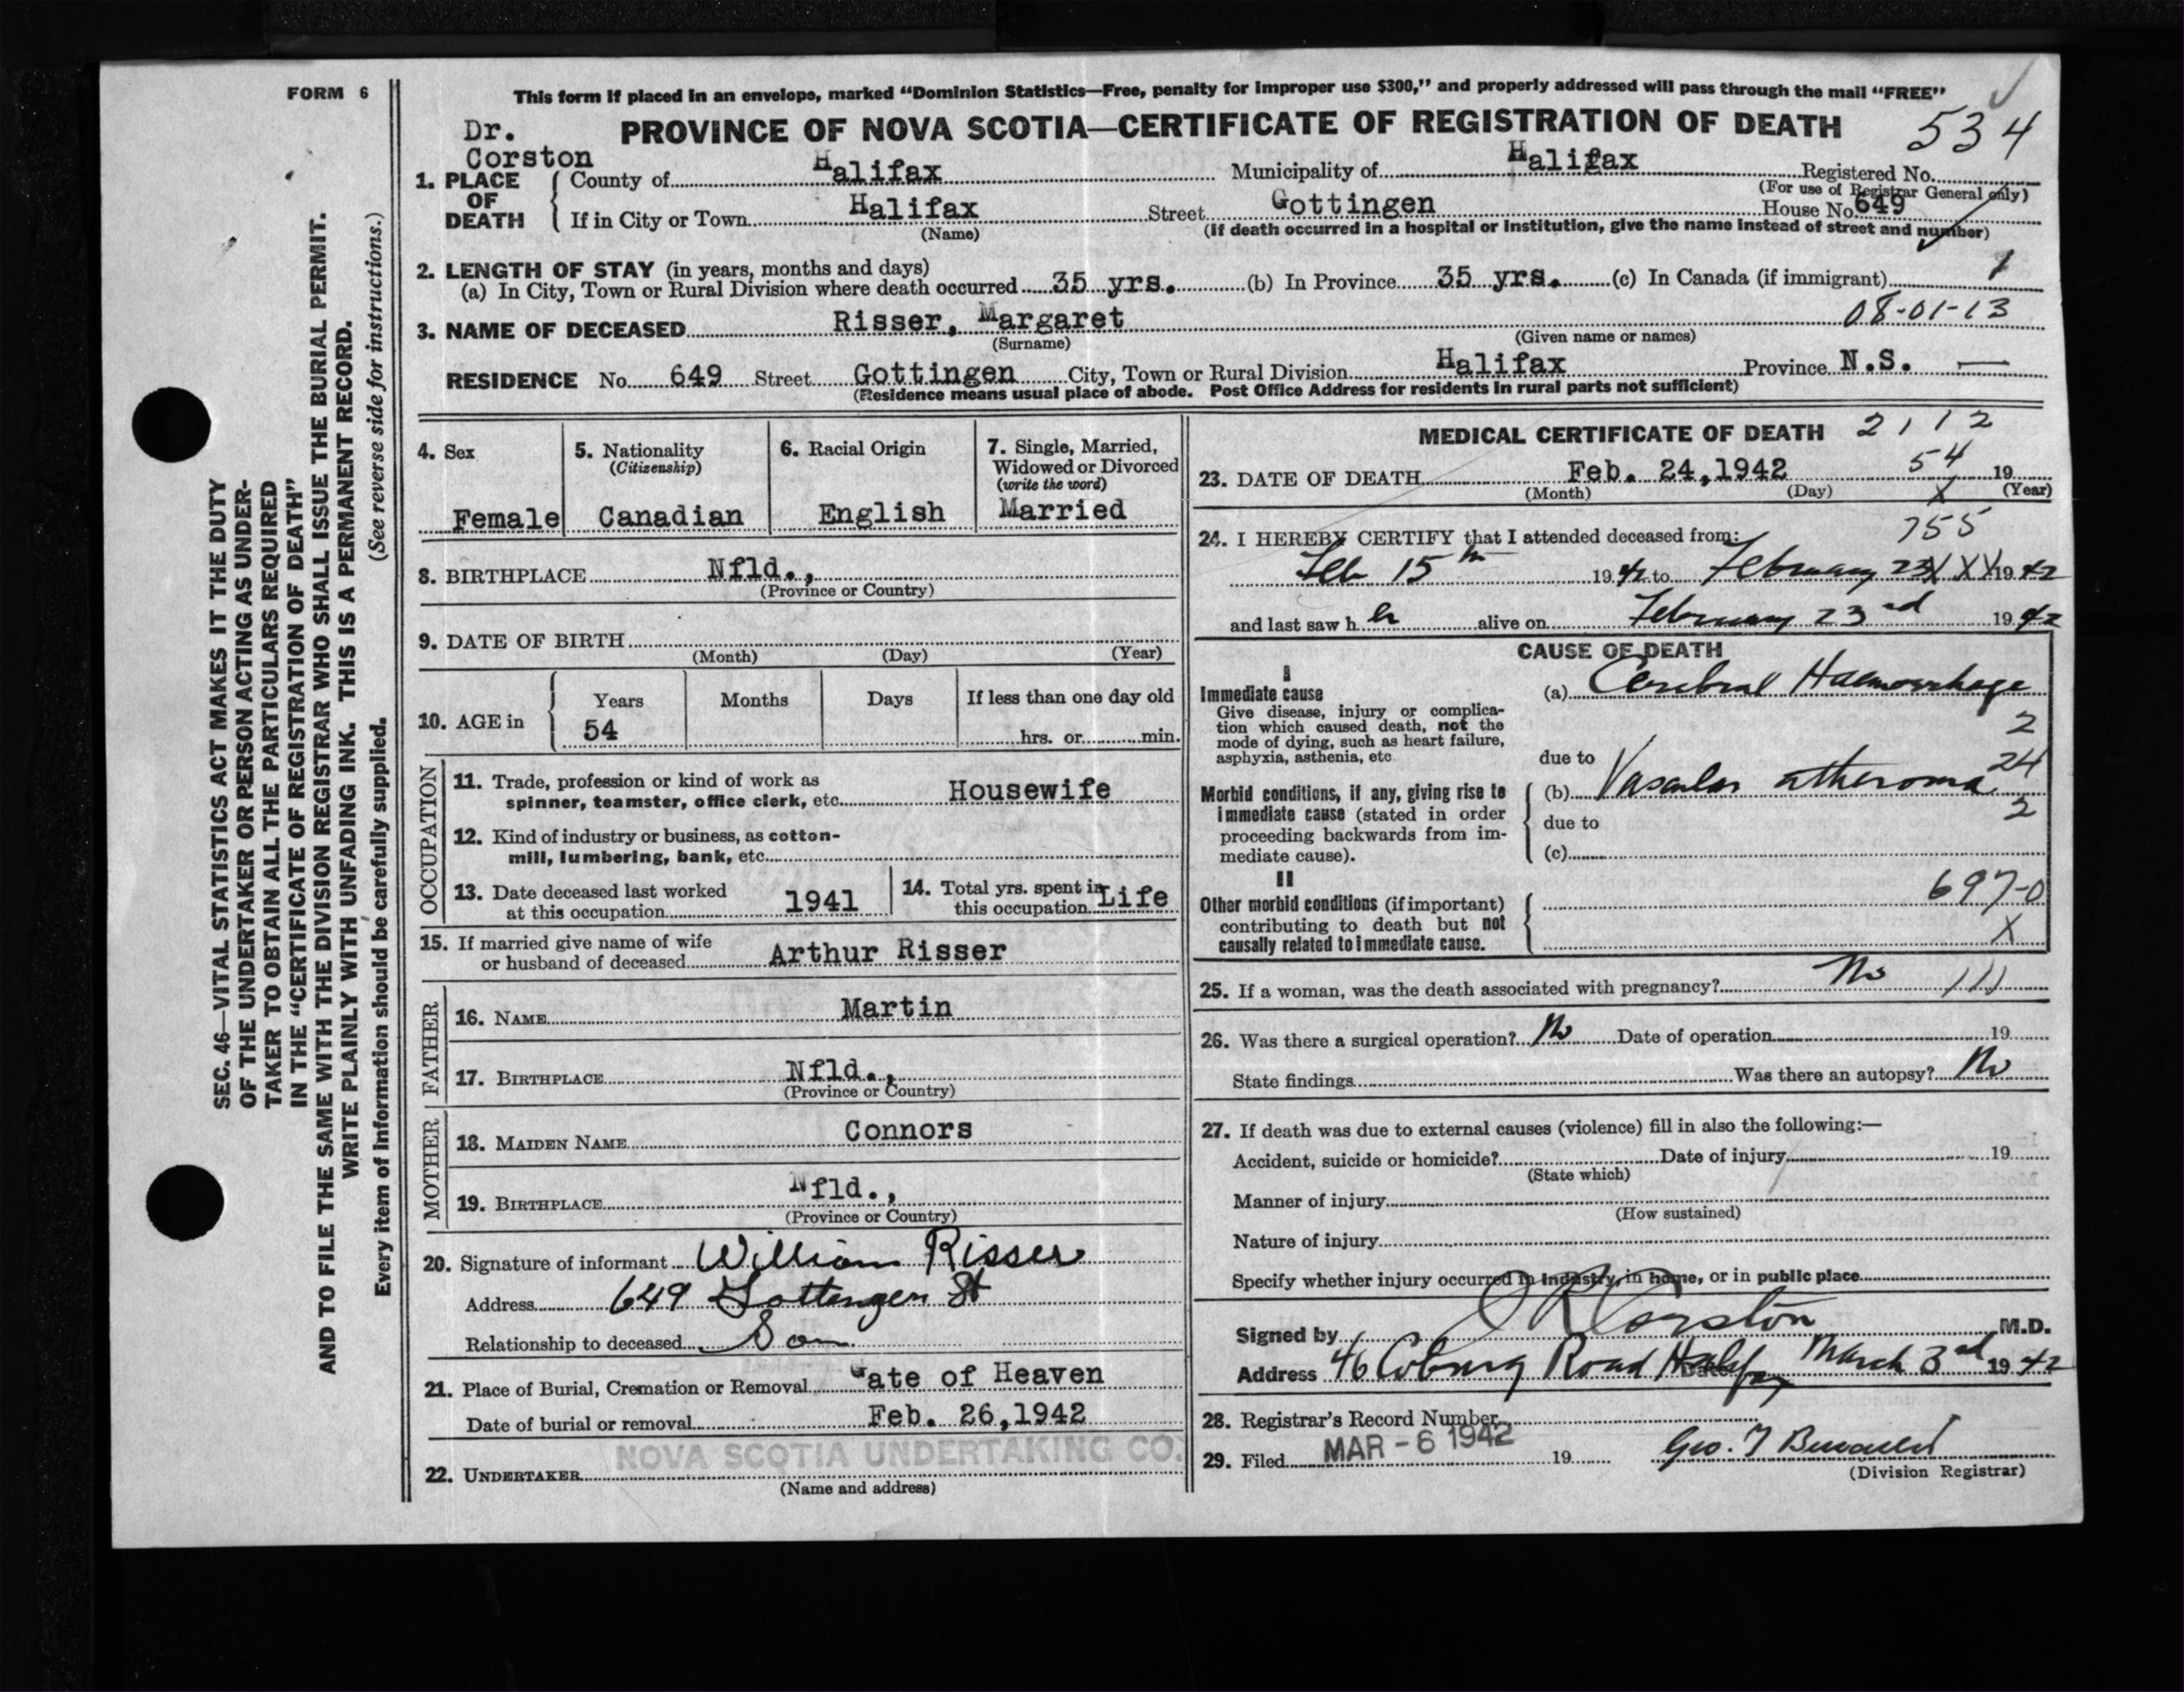 FORM 6
This form if placed in an envelope, marked “Dominion Statistics—Free, penalty for improper use $300,” and properly addressed will pass through the mail “FREE”
Dr. Corston
PROVINCE OF NOVA SCOTIA—CERTIFICATE OF REGISTRATION OF DEATH
534
1. PLACE OF DEATH
County of Halifax Municipality of Halifax Registered No.
(For use of Registrar General only)
If in City or Town Halifax Street Gottingen House No. 649
(Name) (If death occurred in a hospital or institution, give the name instead of street and number)
2. LENGTH OF STAY (in years, months and days)
(a) In City, Town or Rural Division where death occurred 35 yrs. (b) In Province 35 yrs. (c) In Canada (if immigrant) 1
3. NAME OF DECEASED Risser, Margaret 08-01-13
(Surname) (Given name or names)
RESIDENCE No. 649 Street Gottingen City, Town or Rural Division Halifax Province N.S. —
(Residence means usual place of abode. Post Office Address for residents in rural parts not sufficient)
4. Sex
Female
5. Nationality
(Citizenship)
Canadian
6. Racial Origin
English
7. Single, Married,
Widowed or Divorced
(write the word)
Married
8. BIRTHPLACE Nfld.,
(Province or Country)
9. DATE OF BIRTH
(Month) (Day) (Year)
10. AGE in
Years Months Days If less than one day old
54 hrs. or min.
OCCUPATION
11. Trade, profession or kind of work as
spinner, teamster, office clerk, etc. Housewife
12. Kind of industry or business, as cotton-
mill, lumbering, bank, etc.
13. Date deceased last worked
at this occupation 1941
14. Total yrs. spent in
this occupation Life
15. If married give name of wife
or husband of deceased Arthur Risser
FATHER
16. NAME Martin
17. BIRTHPLACE Nfld.,
(Province or Country)
MOTHER
18. MAIDEN NAME Connors
19. BIRTHPLACE Nfld.,
(Province or Country)
20. Signature of informant William Risser
Address 649 Gottengen St
Relationship to deceased Son
21. Place of Burial, Cremation or Removal Gate of Heaven
Date of burial or removal Feb. 26,1942
NOVA SCOTIA UNDERTAKING CO.
22. UNDERTAKER
(Name and address)
MEDICAL CERTIFICATE OF DEATH 2112
54
23. DATE OF DEATH Feb. 24,1942 19
(Month) (Day) (Year)
X
755
24. I HEREBY CERTIFY that I attended deceased from:
Feb 15th 1942 to February 23 XXX 1942
and last saw her alive on February 23rd 1942
CAUSE OF DEATH
I
Immediate cause
Give disease, injury or complica-
tion which caused death, not the
mode of dying, such as heart failure,
asphyxia, asthenia, etc
(a) Cerebral Haemorrhage
2
due to
24
Morbid conditions, if any, giving rise to
immediate cause (stated in order
proceeding backwards from im-
mediate cause).
(b) Vascular atheroma
2
due to
(c)
II
Other morbid conditions (if important)
contributing to death but not
causally related to immediate cause.
697-0
X
25. If a woman, was the death associated with pregnancy? No 111
26. Was there a surgical operation? No Date of operation 19
State findings Was there an autopsy? No
27. If death was due to external causes (violence) fill in also the following:—
Accident, suicide or homicide? Date of injury 19
(State which)
Manner of injury
(How sustained)
Nature of injury
Specify whether injury occurred in industry, in home, or in public place
Signed by J R Corston M.D.
Address 46 Coburg Road Halifax Date March 3rd 1942
28. Registrar's Record Number
29. Filed MAR - 6 1942 19
Geo. 
(Division Registrar)
SEC. 46—VITAL STATISTICS ACT MAKES IT THE DUTY
OF THE UNDERTAKER OR PERSON ACTING AS UNDER-
TAKER TO OBTAIN ALL THE PARTICULARS REQUIRED
IN THE “CERTIFICATE OF REGISTRATION OF DEATH”
AND TO FILE THE SAME WITH THE DIVISION REGISTRAR WHO SHALL ISSUE THE BURIAL PERMIT.
WRITE PLAINLY WITH UNFADING INK. THIS IS A PERMANENT RECORD.
Every item of information should be carefully supplied. (See reverse side for instructions.)